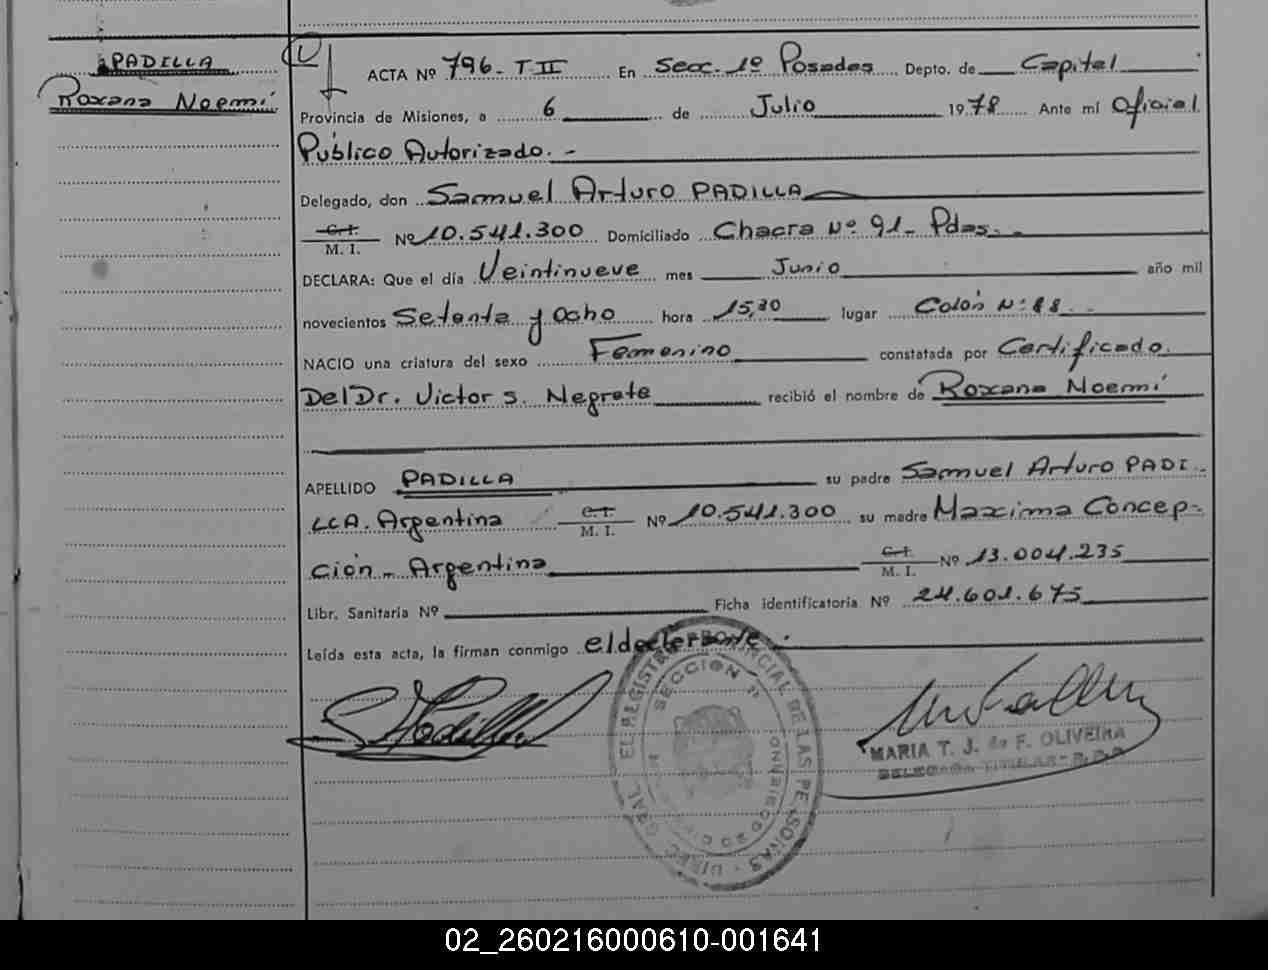 PADILLA
Roxana Noemí
ACTA Nº 796 - T-II En Secc. 1º Posadas Depto. de Capital
Provincia de Misiones, a 6 de Julio 1978 Ante mí Oficial
Público Autorizado. -
Delegado, don Samuel Arturo PADILLA
C. I.
M. I. Nº 10.541.300 Domiciliado Chacra Nº 91 - Pdas. -
DECLARA: Que el día Veintinueve mes Junio año mil
novecientos Setenta y Ocho hora 15,30 lugar Colón Nº: 88
NACIO una criatura del sexo Femenino constatada por Certificado.
Del Dr. Victor S. Negrete recibió el nombre de Roxana Noemí
APELLIDO PADILLA su padre Samuel Arturo PADI-
LLA. Argentina C. I. M. I. Nº 10.541.300 su madre Maxima Concep-
ción - Argentina C. I. M. I. Nº 13.004.235
Libr. Sanitaria Nº Ficha identificatoria Nº 24.601.675
Leída esta acta, la firman conmigo el declarante.
SECCION
MARIA T. J. de F. OLIVEIRA
DELEGADA TITULAR
02_260216000610-001641